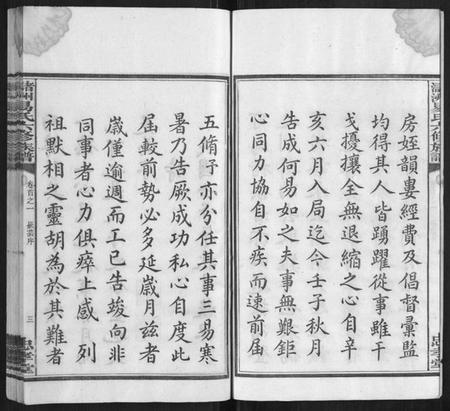 房姪韻婁經費及倡督彙監
均得其人皆踴躍從事雖干
戈擾攘全無退縮之心自辛
亥六月入局迄今壬子秋月
告成何易如之夫事無艱鉅
心同力協自不疾而速前屆
五脩予亦分任其事三易寒
暑乃告厥成功私心自度此
屆較前勢必多延歲月茲者
歲僅逾週而工已告竣向非
同事者心力俱瘁上感 列
祖默相之靈胡為於其難者
易氏六修族譜
卷首之一
序
三
忠孝堂